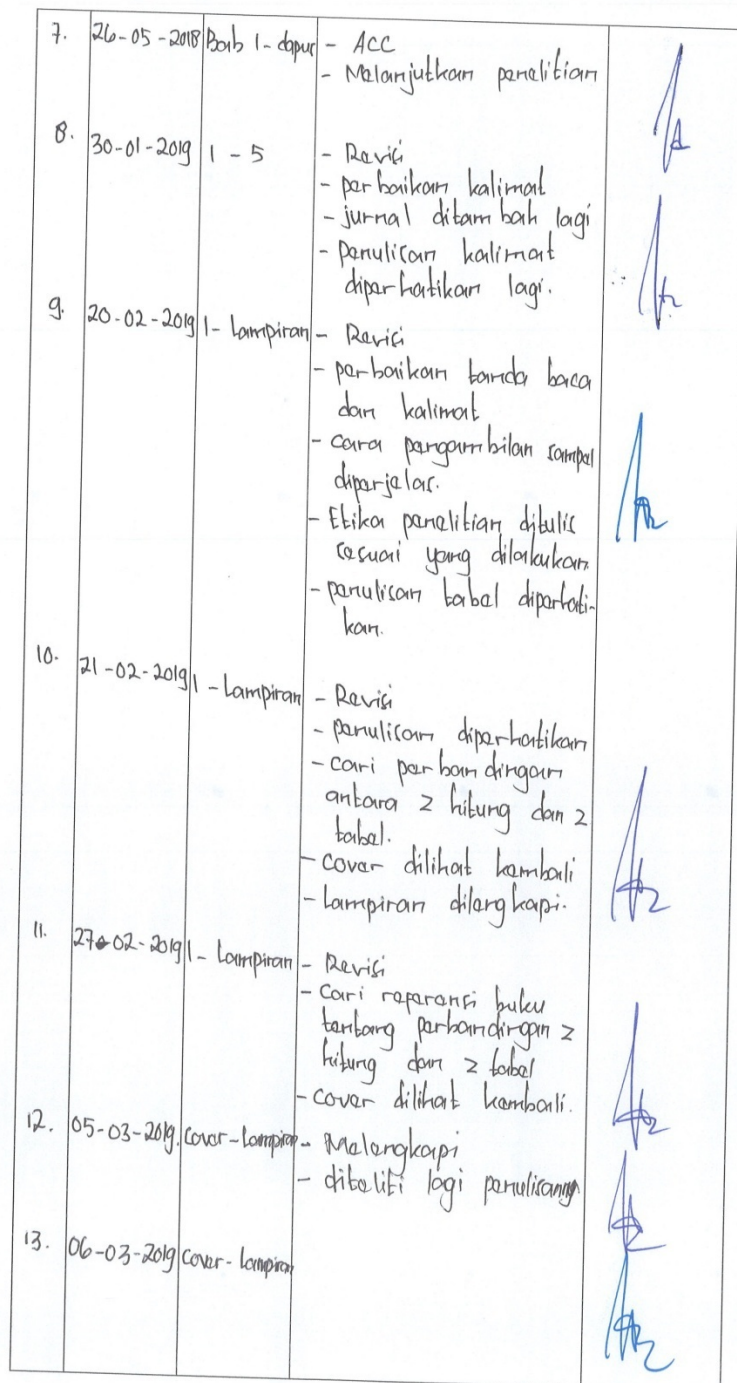 7. 26-05-2018 Bab 1-dapus - ACC
- Melanjutkan penelitian
8. 30-01-2019 1 - 5 - Revisi
- perbaikan kalimat
- jurnal ditambah lagi
- penulisan kalimat
diperhatikan lagi.
9. 20-02-2019 1- Lampiran - Revisi
- perbaikan tanda baca
dan kalimat
- cara pengambilan sampel
diperjelas.
- Etika penelitian ditulis
sesuai yang dilakukan
- penulisan tabel diperhati-
kan.
10. 21-02-2019 1 - Lampiran - Revisi
- penulisan diperhatikan
- cari perbandingan
antara z hitung dan z
tabel.
- cover dilihat kembali
- Lampiran dilengkapi.
11. 27-02-2019 1 - Lampiran - Revisi
- Cari referensi buku
tentang perbandingan z
hitung dan z tabel
- cover dilihat kembali.
12. 05-03-2019. Cover-Lampiran - Melengkapi
- diteliti lagi penulisannya
13. 06-03-2019 Cover-Lampiran